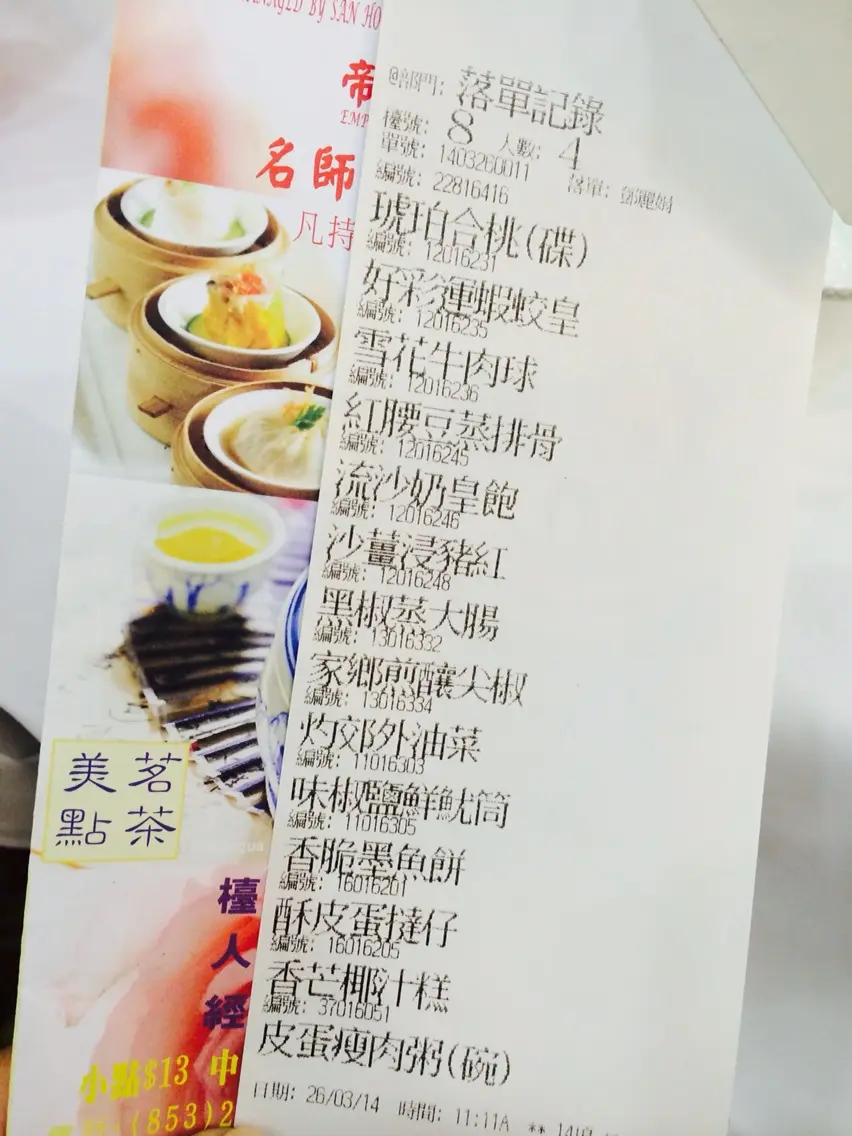 MANAGED BY SAN HO
帝
EMP
名師
凡持
美茗
點茶
檯
人
經
小點$13 中
(853)2
@部門: 落單記錄
檯號: 8 人數: 4
單號: 1403260011 落單: 鄧麗娟
編號: 22816416
琥珀合桃(碟)
編號: 12016231
好彩運蝦蛟皇
編號: 12016235
雪花牛肉球
編號: 12016236
紅腰豆蒸排骨
編號: 12016245
流沙奶皇飽
編號: 12016246
沙薑浸豬紅
編號: 12016248
黑椒蒸大腸
編號: 13016332
家鄉煎釀尖椒
編號: 13016334
灼郊外油菜
編號: 11016303
味椒鹽鮮魷筒
編號: 11016305
香脆墨魚餅
編號: 16016201
酥皮蛋撻仔
編號: 16016205
香芒椰汁糕
編號: 37016051
皮蛋瘦肉粥(碗)
日期: 26/03/14 時間: 11:11A ** 14項